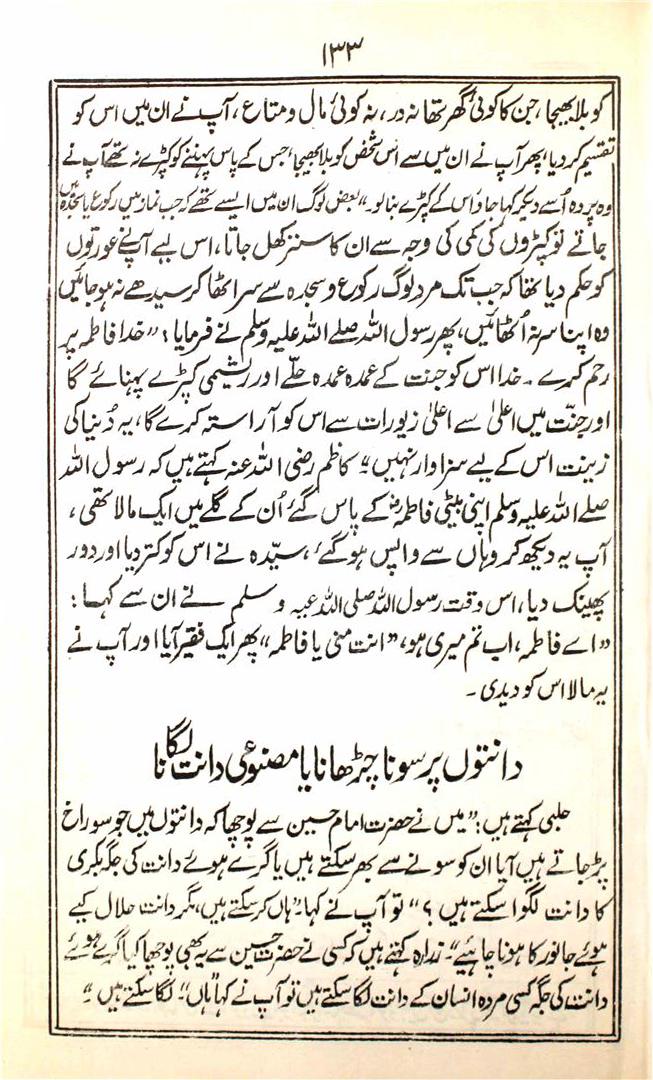 ۱۳۳
کو بلا بھیجا، جن کا کوئی گھر تھا نہ در، نہ کوئی مال و متاع، آپ نے ان میں اس کو
تقسیم کر دیا، پھر آپ نے ان میں سے اس شخص کو بلا بھیجا، جس کے پاس پہننے کو کپڑے نہ تھے آپ نے
وہ پردہ اُسے دیکر کہا جاؤ اس کے کپڑے بنا لو۔" بعض لوگ ان میں ایسے تھے کہ جب نماز میں رکوع یا سجدہ میں
جاتے تو کپڑوں کی کمی کی وجہ سے ان کا ستر کھل جاتا، اس لیے آپنے عورتوں
کو حکم دیا تھا کہ جب تک مرد لوگ رکوع و سجدہ سے سر اٹھا کر سیدھے نہ ہو جائیں
وہ اپنا سر نہ اُٹھائیں، پھر رسول اللہ صلے اللہ علیہ وسلم نے فرمایا: "خدا فاطمہ پر
رحم کرے۔ خدا اس کو جنت کے عمدہ عمدہ حلّے اور ریشمی کپڑے پہنائے گا
اور جنّت میں اعلیٰ سے اعلیٰ زیورات سے اس کو آراستہ کرے گا، یہ دُنیا کی
زینت اس کے لیے سزاوار نہیں" کاظم رضی اللہ عنہ کہتے ہیں کہ رسول اللہ
صلے اللہ علیہ وسلم اپنی بیٹی فاطمہؓ کے پاس گئے اُن کے گلے میں ایک مالا تھی،
آپ یہ دیکھ کر وہاں سے واپس ہو گئے، سیّدہ نے اس کو کتر دیا اور دور
پھینک دیا، اس وقت رسول اللہ صلی اللہ علیہ وسلم نے ان سے کہا:
"اے فاطمہ، اب تم میری ہو، "انت منی یا فاطمہ" پھر ایک فقیر آیا اور آپ نے
یہ مالا اس کو دیدی۔
دانتوں پر سونا چڑھانا یا مصنوعی دانت لگانا
حلبی کہتے ہیں: "میں نے حضرت امام حسین سے پوچھا کہ دانتوں میں جو سوراخ
پڑ جاتے ہیں آیا ان کو سونے سے بھر سکتے ہیں یا گرے ہوئے دانت کی جگہ بکری
کا دانت لگوا سکتے ہیں؟" تو آپ نے کہا "ہاں کر سکتے ہیں، مگر دانت حلال کیے
ہوئے جانور کا ہونا چاہیئے"۔ زرارہ کہتے ہیں کہ کسی نے حضرت حسین سے یہ بھی پوچھا کیا گرے ہوئے
دانت کی جگہ کسی مردہ انسان کے دانت لگا سکتے ہیں تو آپ نے کہا "ہاں" لگا سکتے ہیں"۔